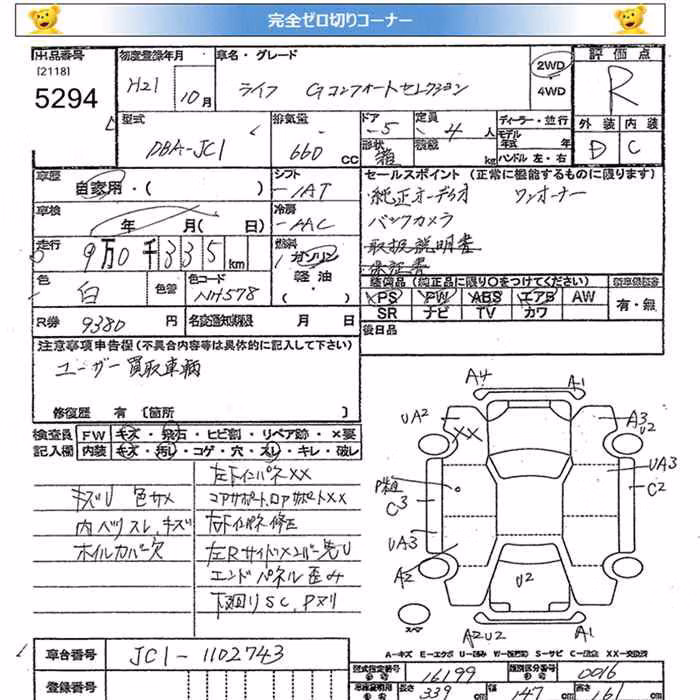 完全ゼロ切りコーナー
出品番号 初度登録年月 車名・グレード 評価点
[2118]
5294 H21 10月 ライフ Gコンフォートセレクション 2WD 4WD R
型式 排気量 ドア 定員 ディーラー・並行 外装 内装
DBA-JC1 660 CC 5 4人 モデル年式 年 D C
形状 箱 積載 kg ハンドル 左・右
車歴 シフト セールスポイント(正常に機能するものに限ります)
自家用・( ) IAT 純正オーディオ ワンオーナー
車検 冷房 バックカメラ
年 月( 日) AAC 取扱説明書
走行 燃料 保証書
9万0千335km ガソリン・軽油・ 装備品(純正品に限り○をつけてください)
色 色替 カラーコード PS PW ABS エアB AW 有・無
白 NH578 SR ナビ TV カワ
R券 9380円 名変通知期限 月 日 後日品
注意事項申告欄(不具合内容等は具体的に記入して下さい)
ユーザー買取車輌
修復歴 有 [箇所 ]
検査員 FW キズ・飛石・ヒビ割・リペア跡・×要
記入欄 内装 キズ・汚れ・コゲ・穴・スレ・キレ・破レ
左FインパネXX
キズU 色サメ コアサポート,ロアサポートXX
内ベツスレ,キズ 右Fインパネ修正
ホイルカバー欠 左Rサイドメンバー先U
エンドパネル歪み
下廻りSC,Pヌリ
A4 A1
UA2 XX A3 U2
UA3
P粗 C3 C2
UA3
A2 U2
スペア A2U2 A1
A-キズ E-エクボ U-凹み W-補修跡 S-サビ C-腐食 XX-交換済
車台番号 JC1-1102743
型式指定番号 16199 類別区分番号 0016
登録番号 長さ 339 cm 幅 147 cm 高さ 161 cm